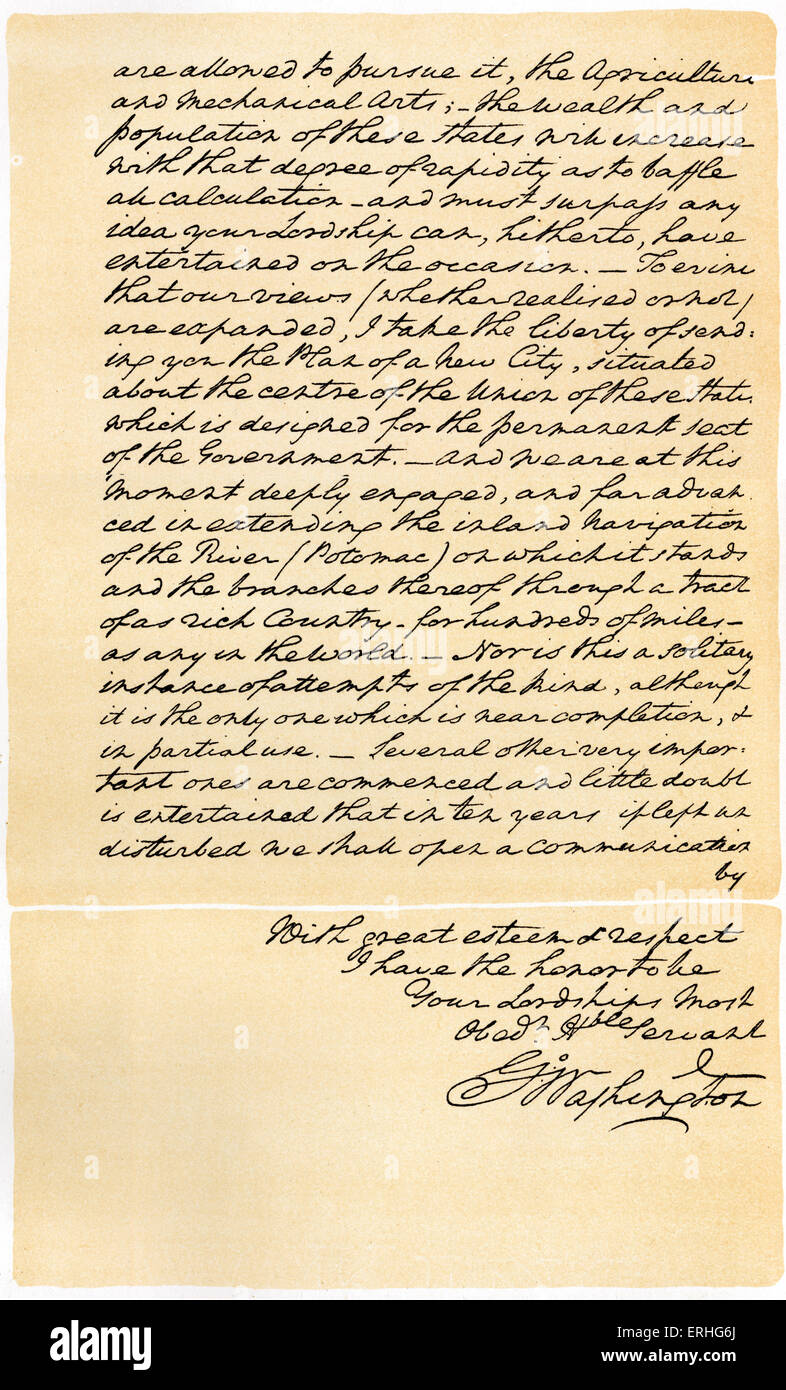 are allowed to pursue it, the Agriculture
and Mechanical Arts; – the wealth and
population of these States will increase
with that degree of rapidity as to baffle
all calculation – and must surpass any
idea your Lordship can, hitherto, have
entertained on the occasion. – To evince
that our views (whether realised or not)
are expanded, I take the liberty of send=
ing you the Plan of a New City, situated
about the centre of the Union of these States,
which is designed for the permanent seat
of the Government. – and we are at this
moment deeply engaged, and far advan
ced in extending the inland Navigation
of the River (Potomac) on which it stands
and the branches thereof through a tract
of as rich Country – for hundreds of miles –
as any in the world. – Nor is this a solitary
instance of attempts of the kind, although
it is the only one which is near completion, &
in partial use. – Several other very impor=
tant ones are commenced and little doubt
is entertained that in ten years if left un
disturbed we shall open a communication
by
With great esteem & respect
I have the honor to be
Your Lordships Most
Obedt Hble Servant
Go Washington
a alamy
alamy
ERHG6J
www.alamy.com